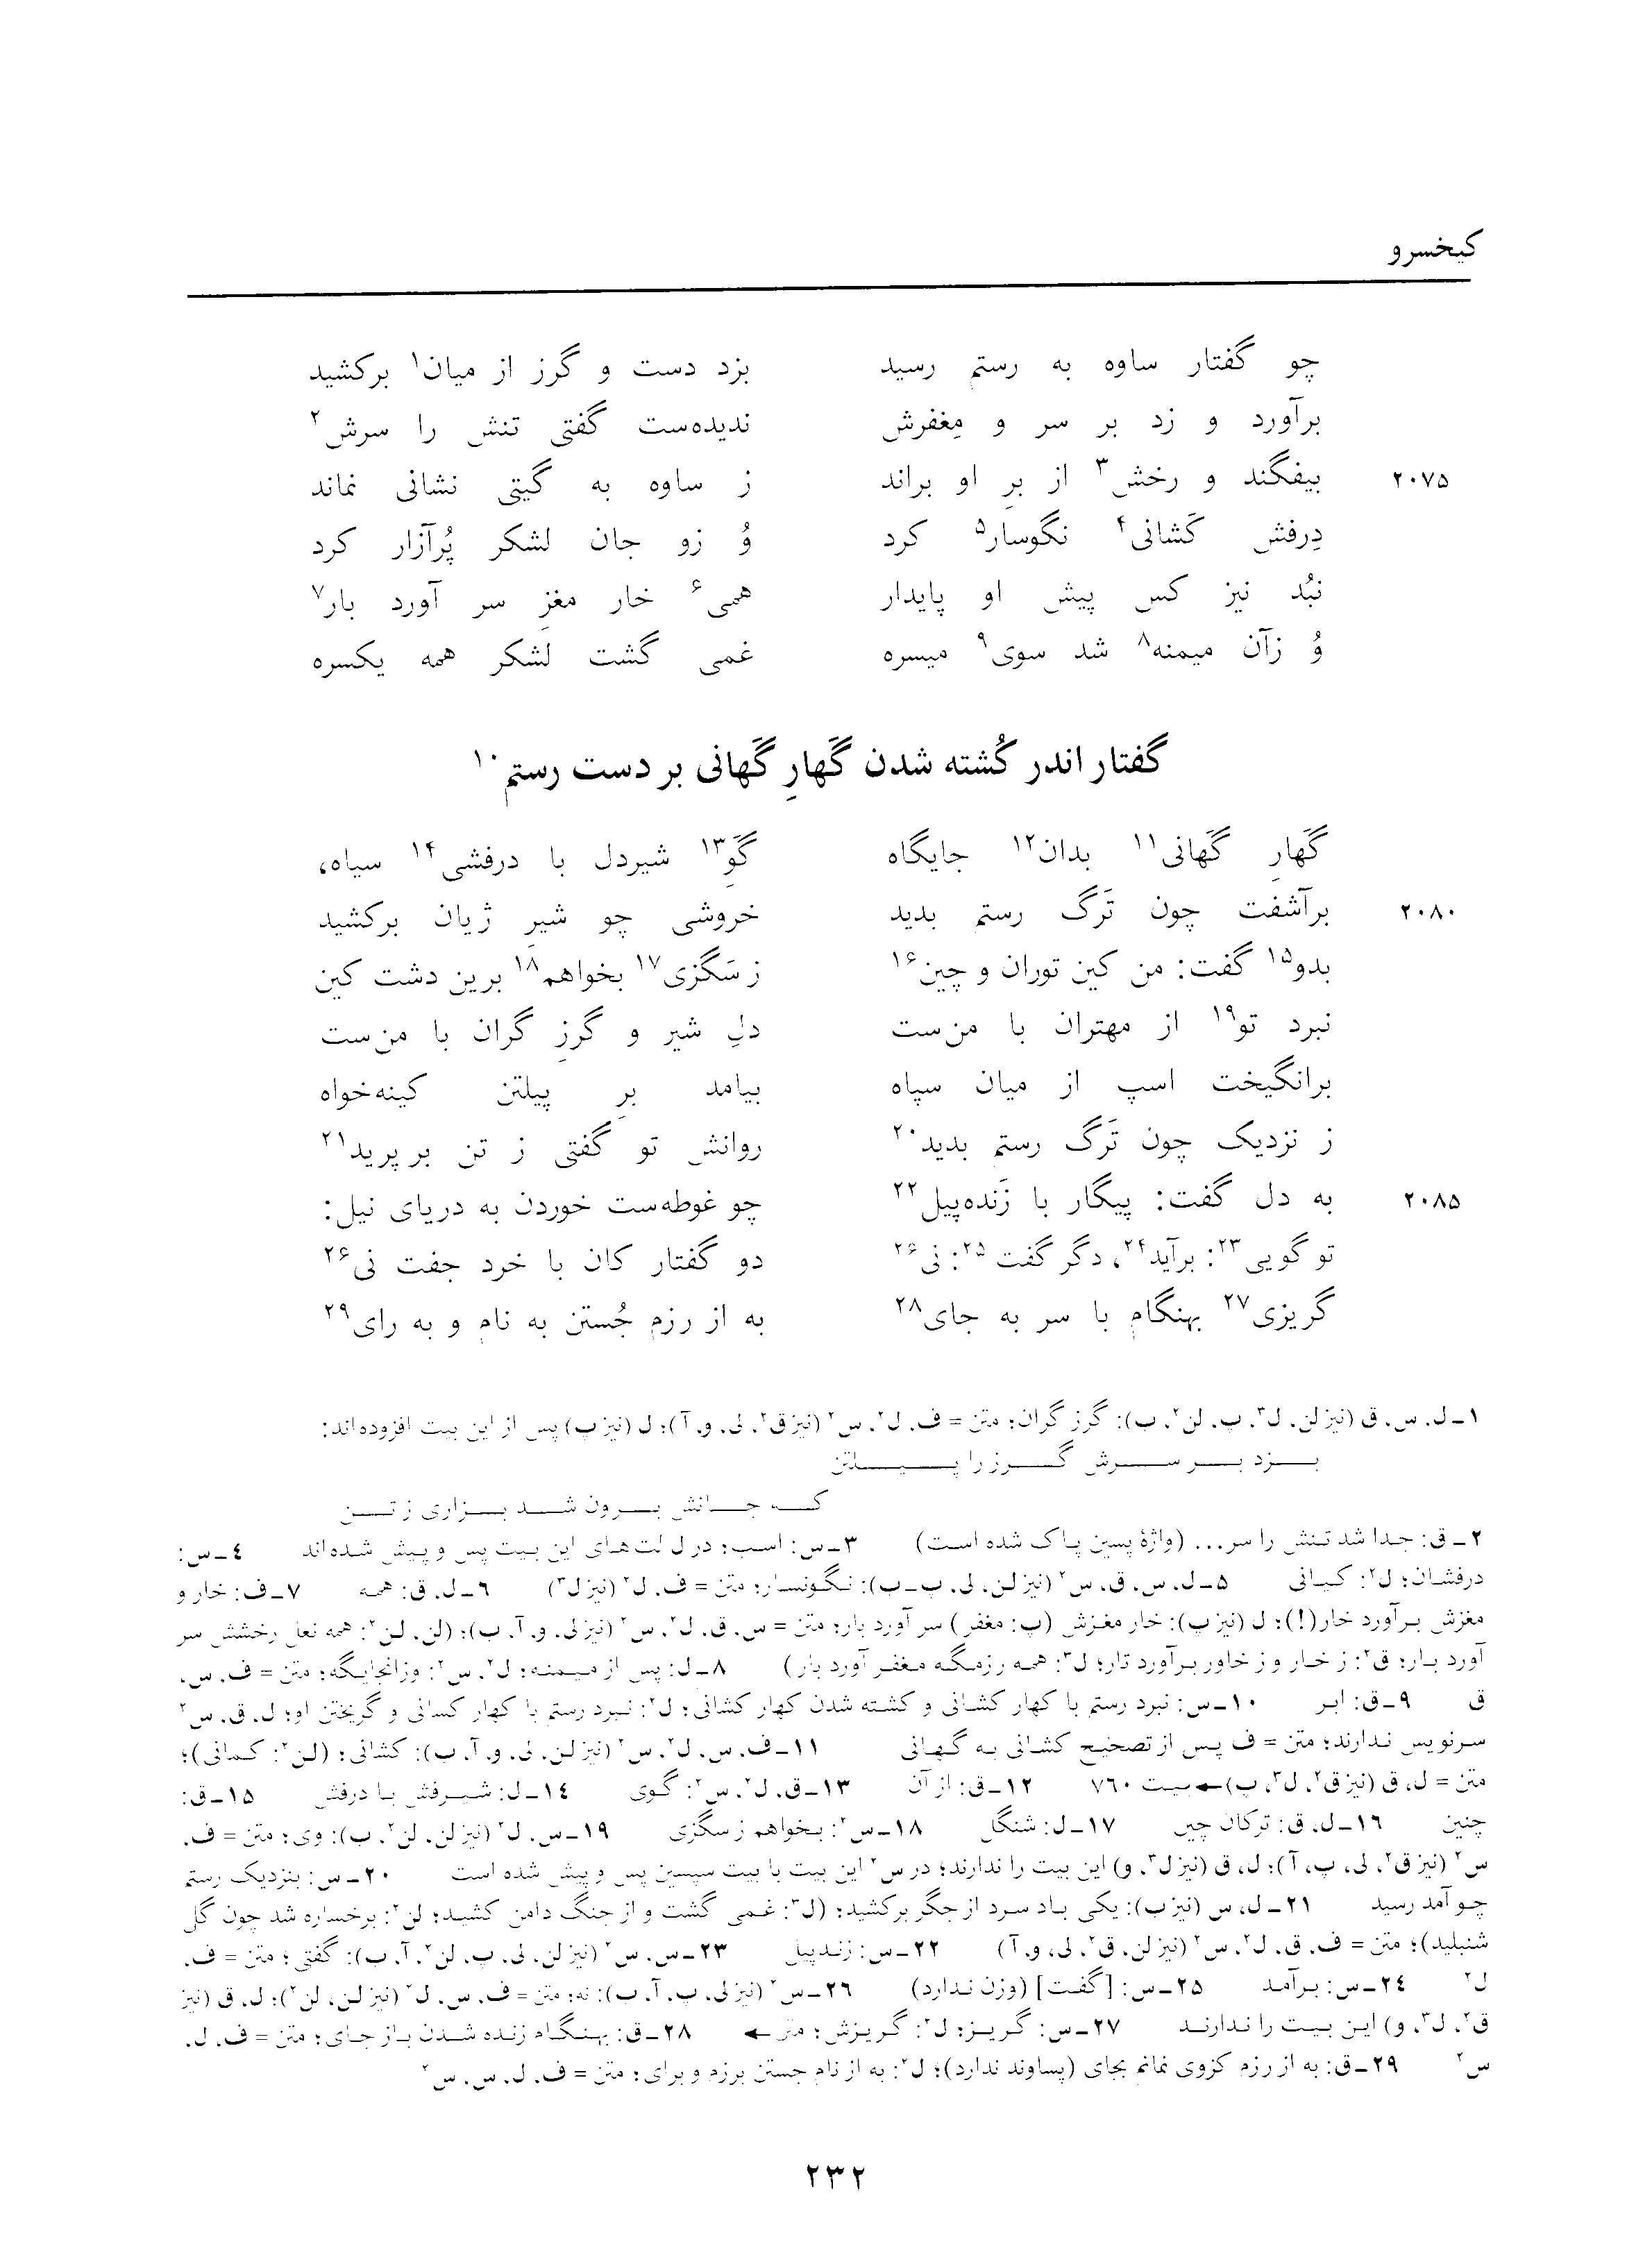 کیخسرو
چو گفتار ساوه به رستم رسید بزد دست و گرز از میان۱ برکشید
برآورد و زد بر سر و مِغفرش ندیده‌ست گفتی تنش را سرش۲
۲۰۷۵ بیفگند و رخش۳ از برِ او براند ز ساوه به گیتی نشانی نماند
دِرفش کَشانی۴ نگوسار۵ کرد وُ زو جان لشکر پُرآزار کرد
نبُد نیز کس پیش او پایدار همی۶ خار مغزِ سر آورد بار۷
وُ زآن میمنه۸ شد سوی۹ میسره غمی گشت لشکر همه یکسره
گفتار اندر کُشته شدن گَهارِ گَهانی بر دست رستم۱۰
گَهارِ گَهانی۱۱ بدان۱۲ جایگاه گَوِ۱۳ شیردل با درفشی۱۴ سیاه،
۲۰۸۰ برآشفت چون تَرگ رستم بدید خروشی چو شیرِ ژیان برکشید
بدو۱۵ گفت: من کین توران و چین۱۶ ز سَگزی۱۷ بخواهم۱۸ برین دشت کین
نبرد تو۱۹ از مهتران با من‌ست دلِ شیر و گرزِ گران با من‌ست
برانگیخت اسپ از میان سپاه بیامد برِ پیلتن کینه‌خواه
ز نزدیک چون تَرگ رستم بدید۲۰ روانش تو گفتی ز تن بر پرید۲۱
۲۰۸۵ به دل گفت: پیگار با زَنده‌پیل۲۲ چو غوطه‌ست خوردن به دریای نیل:
تو گویی۲۳: برآید۲۴، دگر گفت۲۵: نی۲۶ دو گفتار کان با خرد جفت نی۲۶
گریزی۲۷ بهنگام با سر به جای۲۸ به از رزم جُستن به نام و به رای۲۹
۱ـ ل، س، ق (نیز لن، ل۳، پ، لن۲، ب): گرز گران؛ متن = ف، ل۲، س۲ (نیز ق۲، لی، و، آ)؛ ل (نیز ب) پس از این بیت افزوده‌اند:
بـزد بـر سـرش گـرز را پـیـلتن
کـه جـانش بـرون شـد بـزاری ز تـن
۲ـ ق: جدا شد تنش را سر... (واژهٔ پسین پاک شده است) ۳ـ س: اسب؛ در ل لت‌های این بیت پس و پیش شده‌اند ۴ـ س:
درفشان؛ ل۲: کیانی ۵ـ ل، س، ق، س۲ (نیز لن، لی، پ ـ ب): نگونسار؛ متن = ف، ل۲ (نیز ل۳) ۶ـ ل، ق: همه ۷ـ ف: خار و
مغزش برآورد خار(!)؛ ل (نیز ب): خار مغزش (پ: مغفر) سر آورد بار؛ متن = س، ق، ل۲، س۲ (نیز لی، و، آ، ب)؛ (لن، لن۲: همه نعل رخشش سر
آورد بار؛ ق۲: ز خار و ز خاور برآورد تار؛ ل۳: همه رزمگه مغفر آورد بار) ۸ـ ل: پس از میمنه؛ ل۲، س۲: وزانجایگه؛ متن = ف، س،
ق ۹ـ ق: ابر ۱۰ـ س: نبرد رستم با کهار کشانی و کشته شدن کهار کشانی؛ ل۲: نبرد رستم با کهار کسانی و گریختن او؛ ل، ق، س۲
سرنویس ندارند؛ متن = ف پس از تصحیح کشانی به گهانی ۱۱ـ ف، س، ل۲، س۲ (نیز لن، لی، و، آ، ب): کشانی؛ (لن۲: کمانی)؛
متن = ل، ق (نیز ق۲، ل۳، پ)←بیت ۷۶۰ ۱۲ـ ق: از آن ۱۳ـ ق، ل۲، س۲: گوی ۱۴ـ ل: شیرفش با درفش ۱۵ـ ق:
چنین ۱۶ـ ل، ق: ترکان چین ۱۷ـ ل: شنگل ۱۸ـ س۲: بخواهم ز سگزی ۱۹ـ س، ل۲ (نیز لن، لن۲، ب): وی؛ متن = ف،
س۲ (نیز ق۲، لی، پ، آ)؛ ل، ق (نیز ل۳، و) این بیت را ندارند؛ در س۲ این بیت با بیت سپسین پس و پیش شده است ۲۰ـ س: بنزدیک رستم
چو آمد رسید ۲۱ـ ل، س (نیز ب): یکی باد سرد از جگر برکشید؛ (ل۳: غمی گشت و از جنگ دامن کشید؛ لن۲: برخساره شد چون گل
شنبلید)؛ متن = ف، ق، ل۲، س۲ (نیز لن، ق۲، لی، و، آ) ۲۲ـ س: زندپیل ۲۳ـ س، س۲ (نیز لن، لی، پ، لن۲، آ، ب): گفتی؛ متن = ف،
ل۲ ۲۴ـ س: برآمد ۲۵ـ س: [گفت] (وزن ندارد) ۲۶ـ س۲ (نیز لی، پ، آ، ب): نه؛ متن = ف، س، ل۲ (نیز لن، لن۲)؛ ل، ق (نیز
ق۲، ل۳، و) این بیت را ندارند ۲۷ـ س: گریز؛ ل۲: گریزش؛ متن ← ۲۸ـ ق: بهنگام زنده شدن باز جای؛ متن = ف، ل،
س۲ ۲۹ـ ق: به از رزم کزوی نمانم بجای (پساوند ندارد)؛ ل۲: به از نام جستن برزم و برای؛ متن = ف، ل، س، س۲
۲۳۲